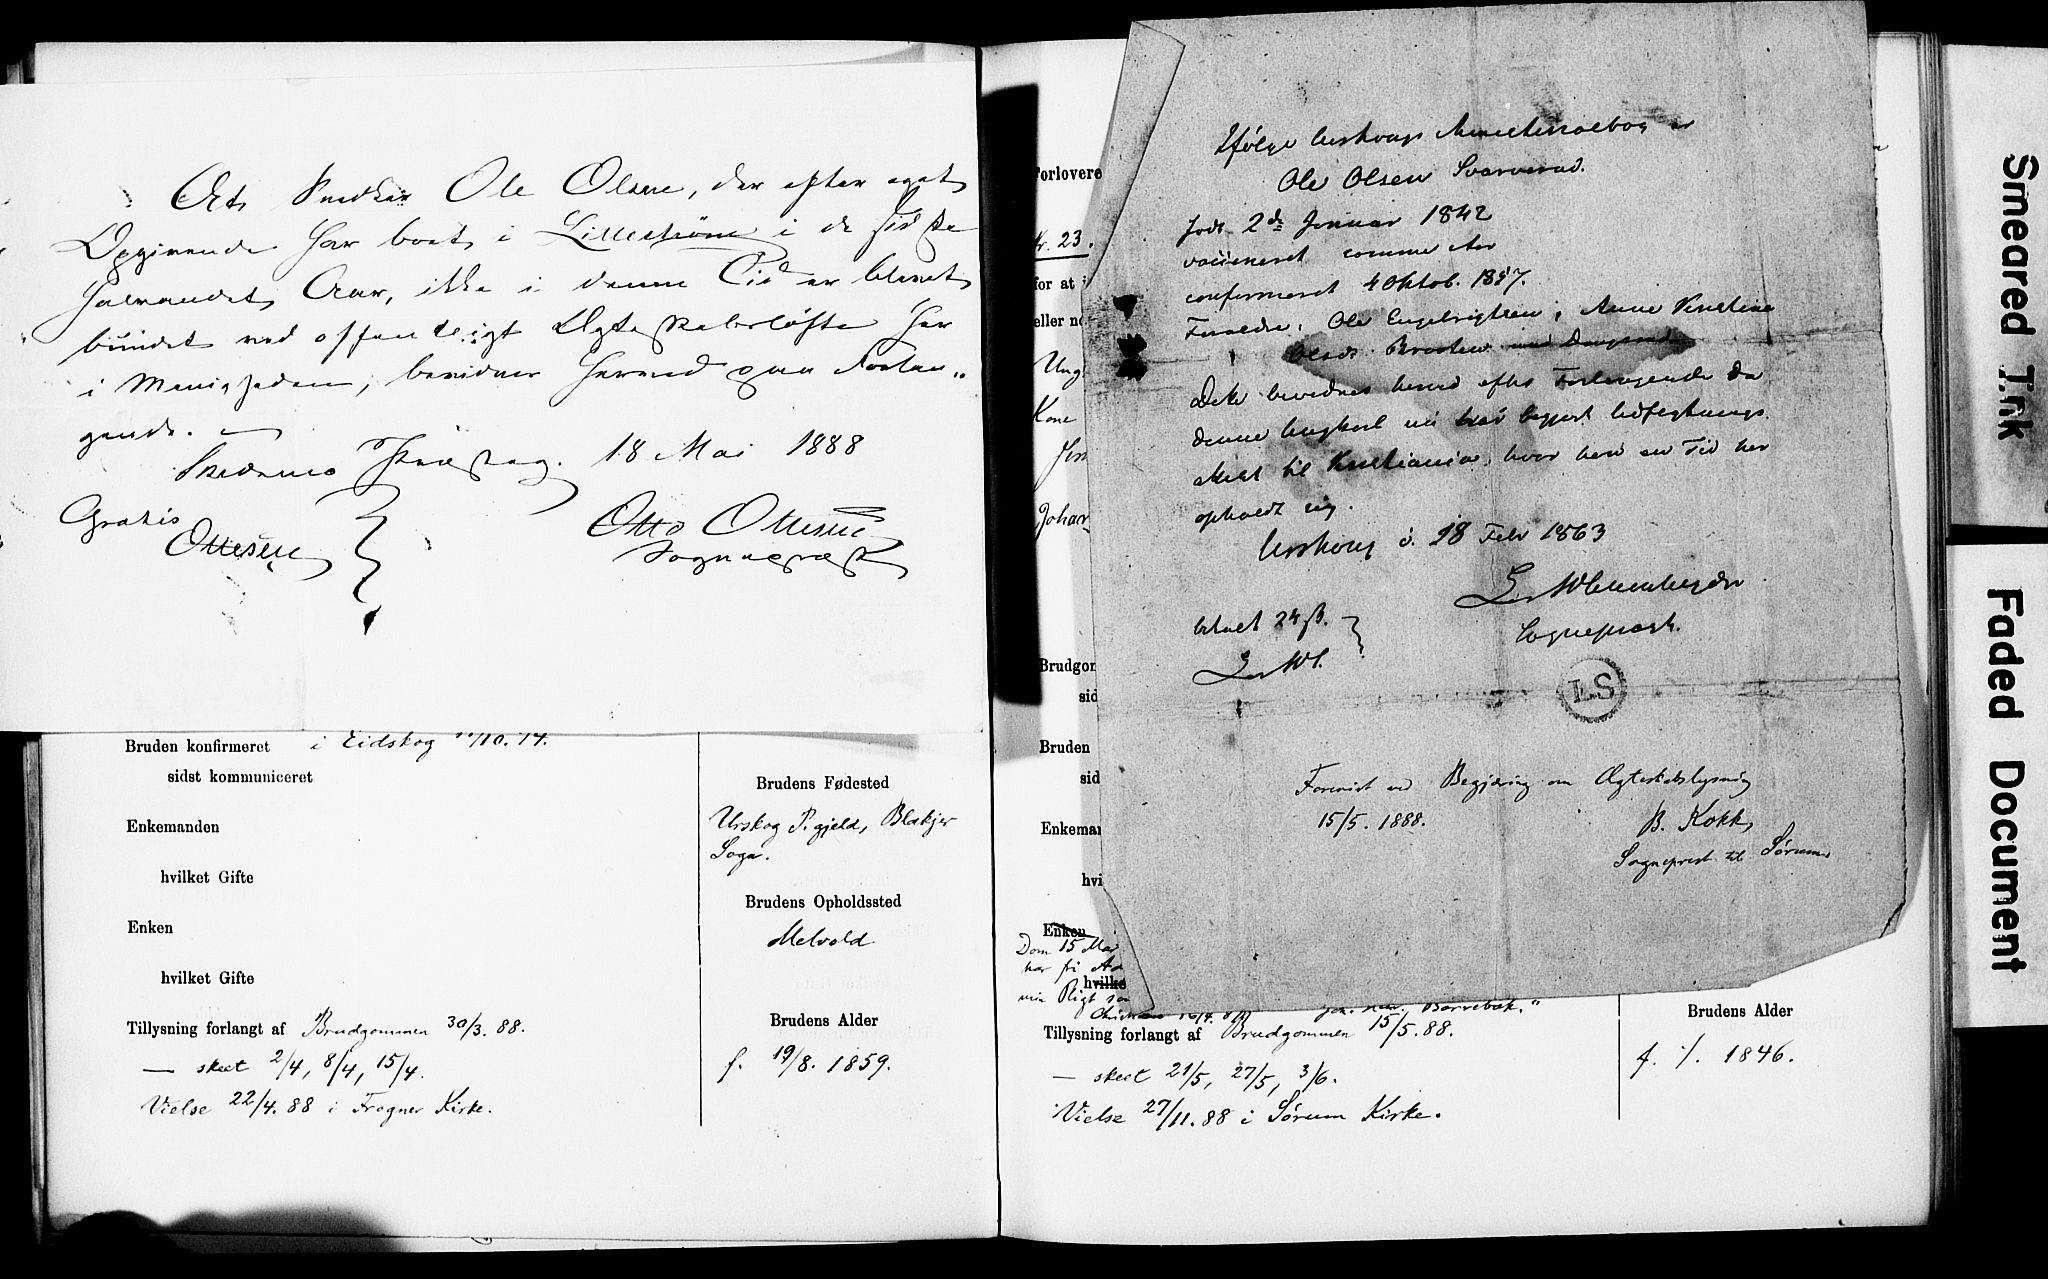 At Snedker Ole Olsen, der efter eget
Opgivende har boet i Lillestrøm i de sidste
halvandet Aar, ikke i denne Tid er blevet
bundet ved offentligt Ægteskabsløfte her
i Menigheden, bevidnes herved paa Forlan-
gende.
Skedsmo Præsteg. 18 Mai 1888
Gratis
Ottesen
Otto Ottesen
Sognepræst
Bruden konfirmeret i Eidskog /10. 74.
sidst kommuniceret
Enkemanden
hvilket Gifte
Enken
hvilket Gifte
Tillysning forlangt af Brudgommen 30/3. 88.
— skeet 2/4, 8/4, 15/4.
Vielse 22/4. 88 i Frogner Kirke.
Brudens Fødested
Urskog P.gjeld, Blakjer
Sogn.
Brudens Opholdssted
Melvold
Brudens Alder
f. 19/8. 1859.
Forlovere
Nr. 23.
for at i
eller no
Ung
Kone
Jen
Johan
Brudgom
sid
Bruden
sid
Enkeman
hvi
Enken
Dom 15 Mai
har fri Ad
min Pligt
hvilke
Tillysning forlangt af Brudgommen 15/5. 88.
— skeet 21/5, 27/5, 3/6.
Vielse 27/11. 88 i Sørum Kirke.
Brudens Alder
f. /. 1846.
Ifølge Urskougs Ministerialbog er
Ole Olsen Svarverud
født 2de Januar 1842
vaccineret samme Aar
confirmeret 4 Oktob. 1857.
Forældre: Ole Engebrigtsen, Anne Kirstine
Olsdr. Braaten
Dette bevidnes herved efter Forlangende da
denne agter begjært Udflytnings
attest til Kristiania, hvor han en Tid har
opholdt sig.
Urskoug d. 28 Febr 1863
Sognepræst.
betalt 24 ß.
LS
Forevist ved Begjæring om Ægteskabslysning
15/5. 1888.
B. Kokk
Sogneprest til Sørum
Smeared Ink
Faded Document